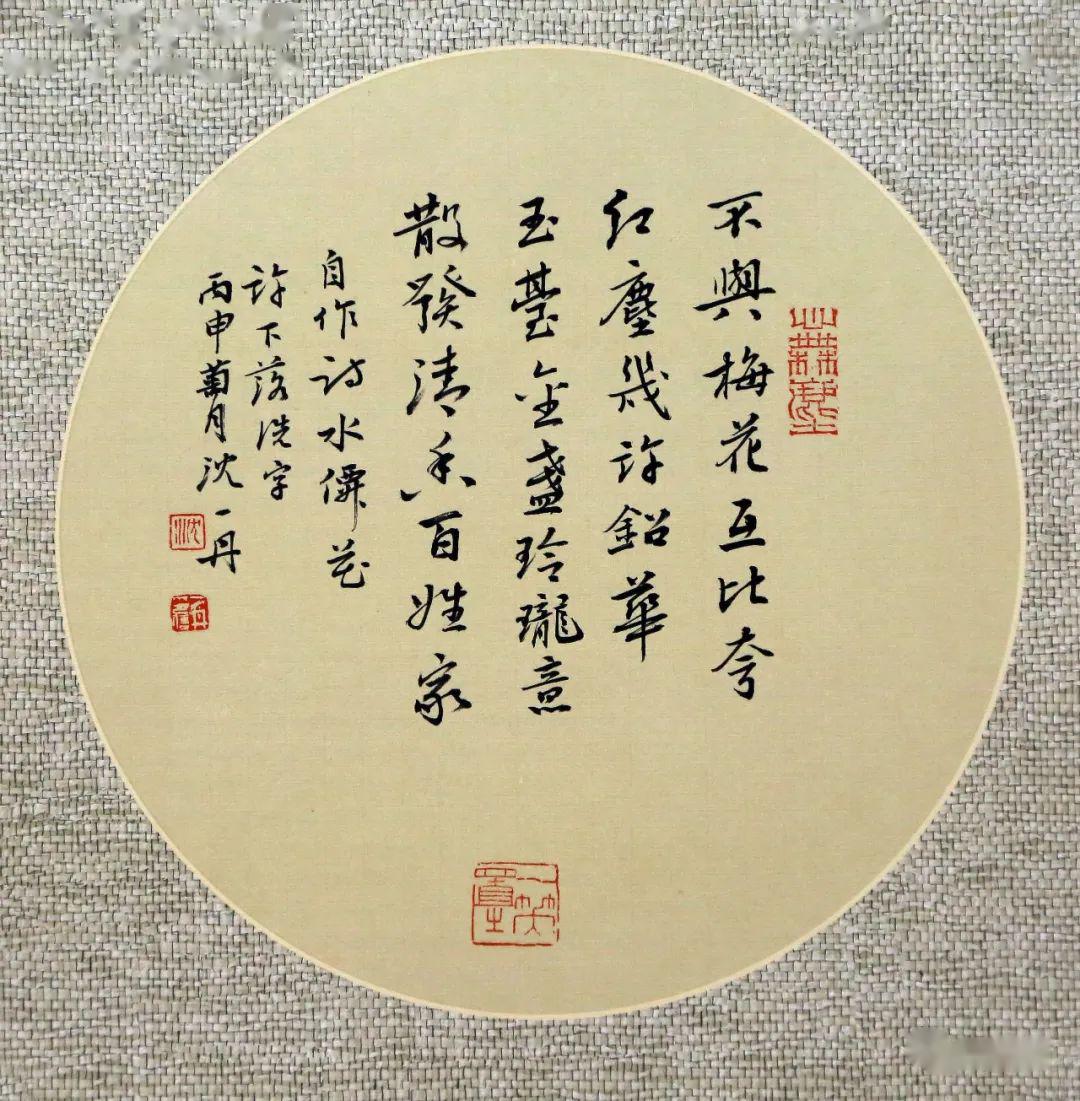 不與梅花互比夸
紅塵幾許鉛華
玉臺金盞玲瓏意
散發清香百姓家
自作詩水僊花
許下落洗字
丙申菊月沈一丹
沈